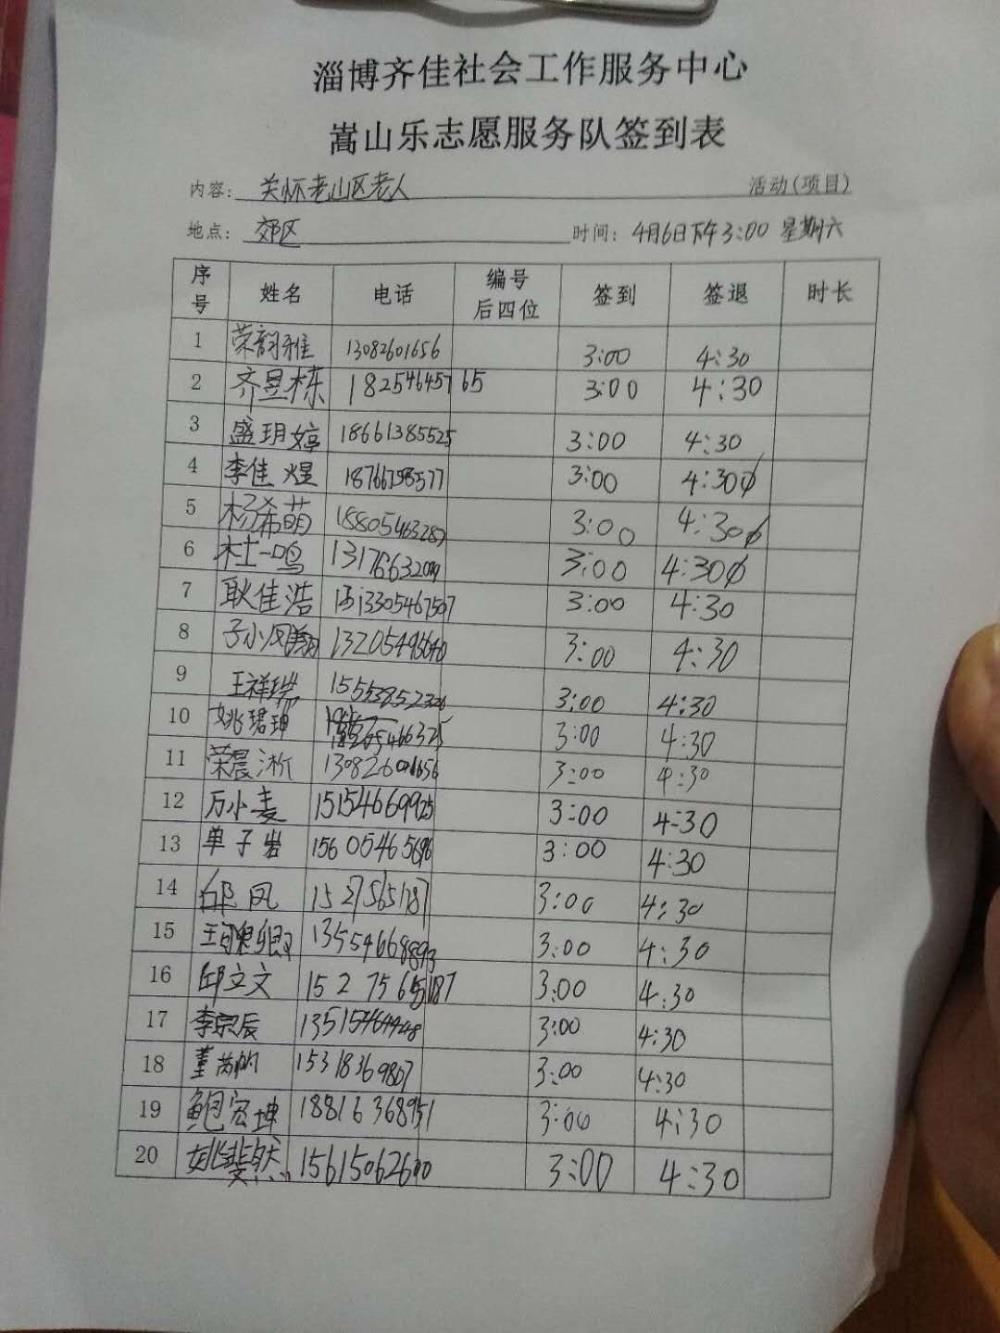 淄博齐佳社会工作服务中心
嵩山乐志愿服务队签到表
内容: 关怀老山区老人 活动(项目)
地点: 郊区 时间: 4月6日下午3:00 星期六
序号 姓名 电话 编号后四位 签到 签退 时长
1 荣韵雅 13082601656 3:00 4:30
2 齐昱栋 18254645765 3:00 4:30
3 盛玥婷 18661385525 3:00 4:30
4 李佳煜 3:00 4:30
5 杨希萌 3:00 4:30
6 杜一鸣 3:00 4:30
7 耿佳浩 3:00 4:30
8 3:00 4:30
9 王祥瑞 3:00 4:30
10 姚珺珅 3:00 4:30
11 荣晨淅 13082601656 3:00 4:30
12 万小麦 15154669925 3:00 4:30
13 单子岩 3:00 4:30
14 邱凤 15275651187 3:00 4:30
15 3:00 4:30
16 邱立文 15275651187 3:00 4:30
17 李宗辰 3:00 4:30
18 董芮帆 15318369807 3:00 4:30
19 鲍宏坤 18816368951 3:00 4:30
20 姚斐然 3:00 4:30